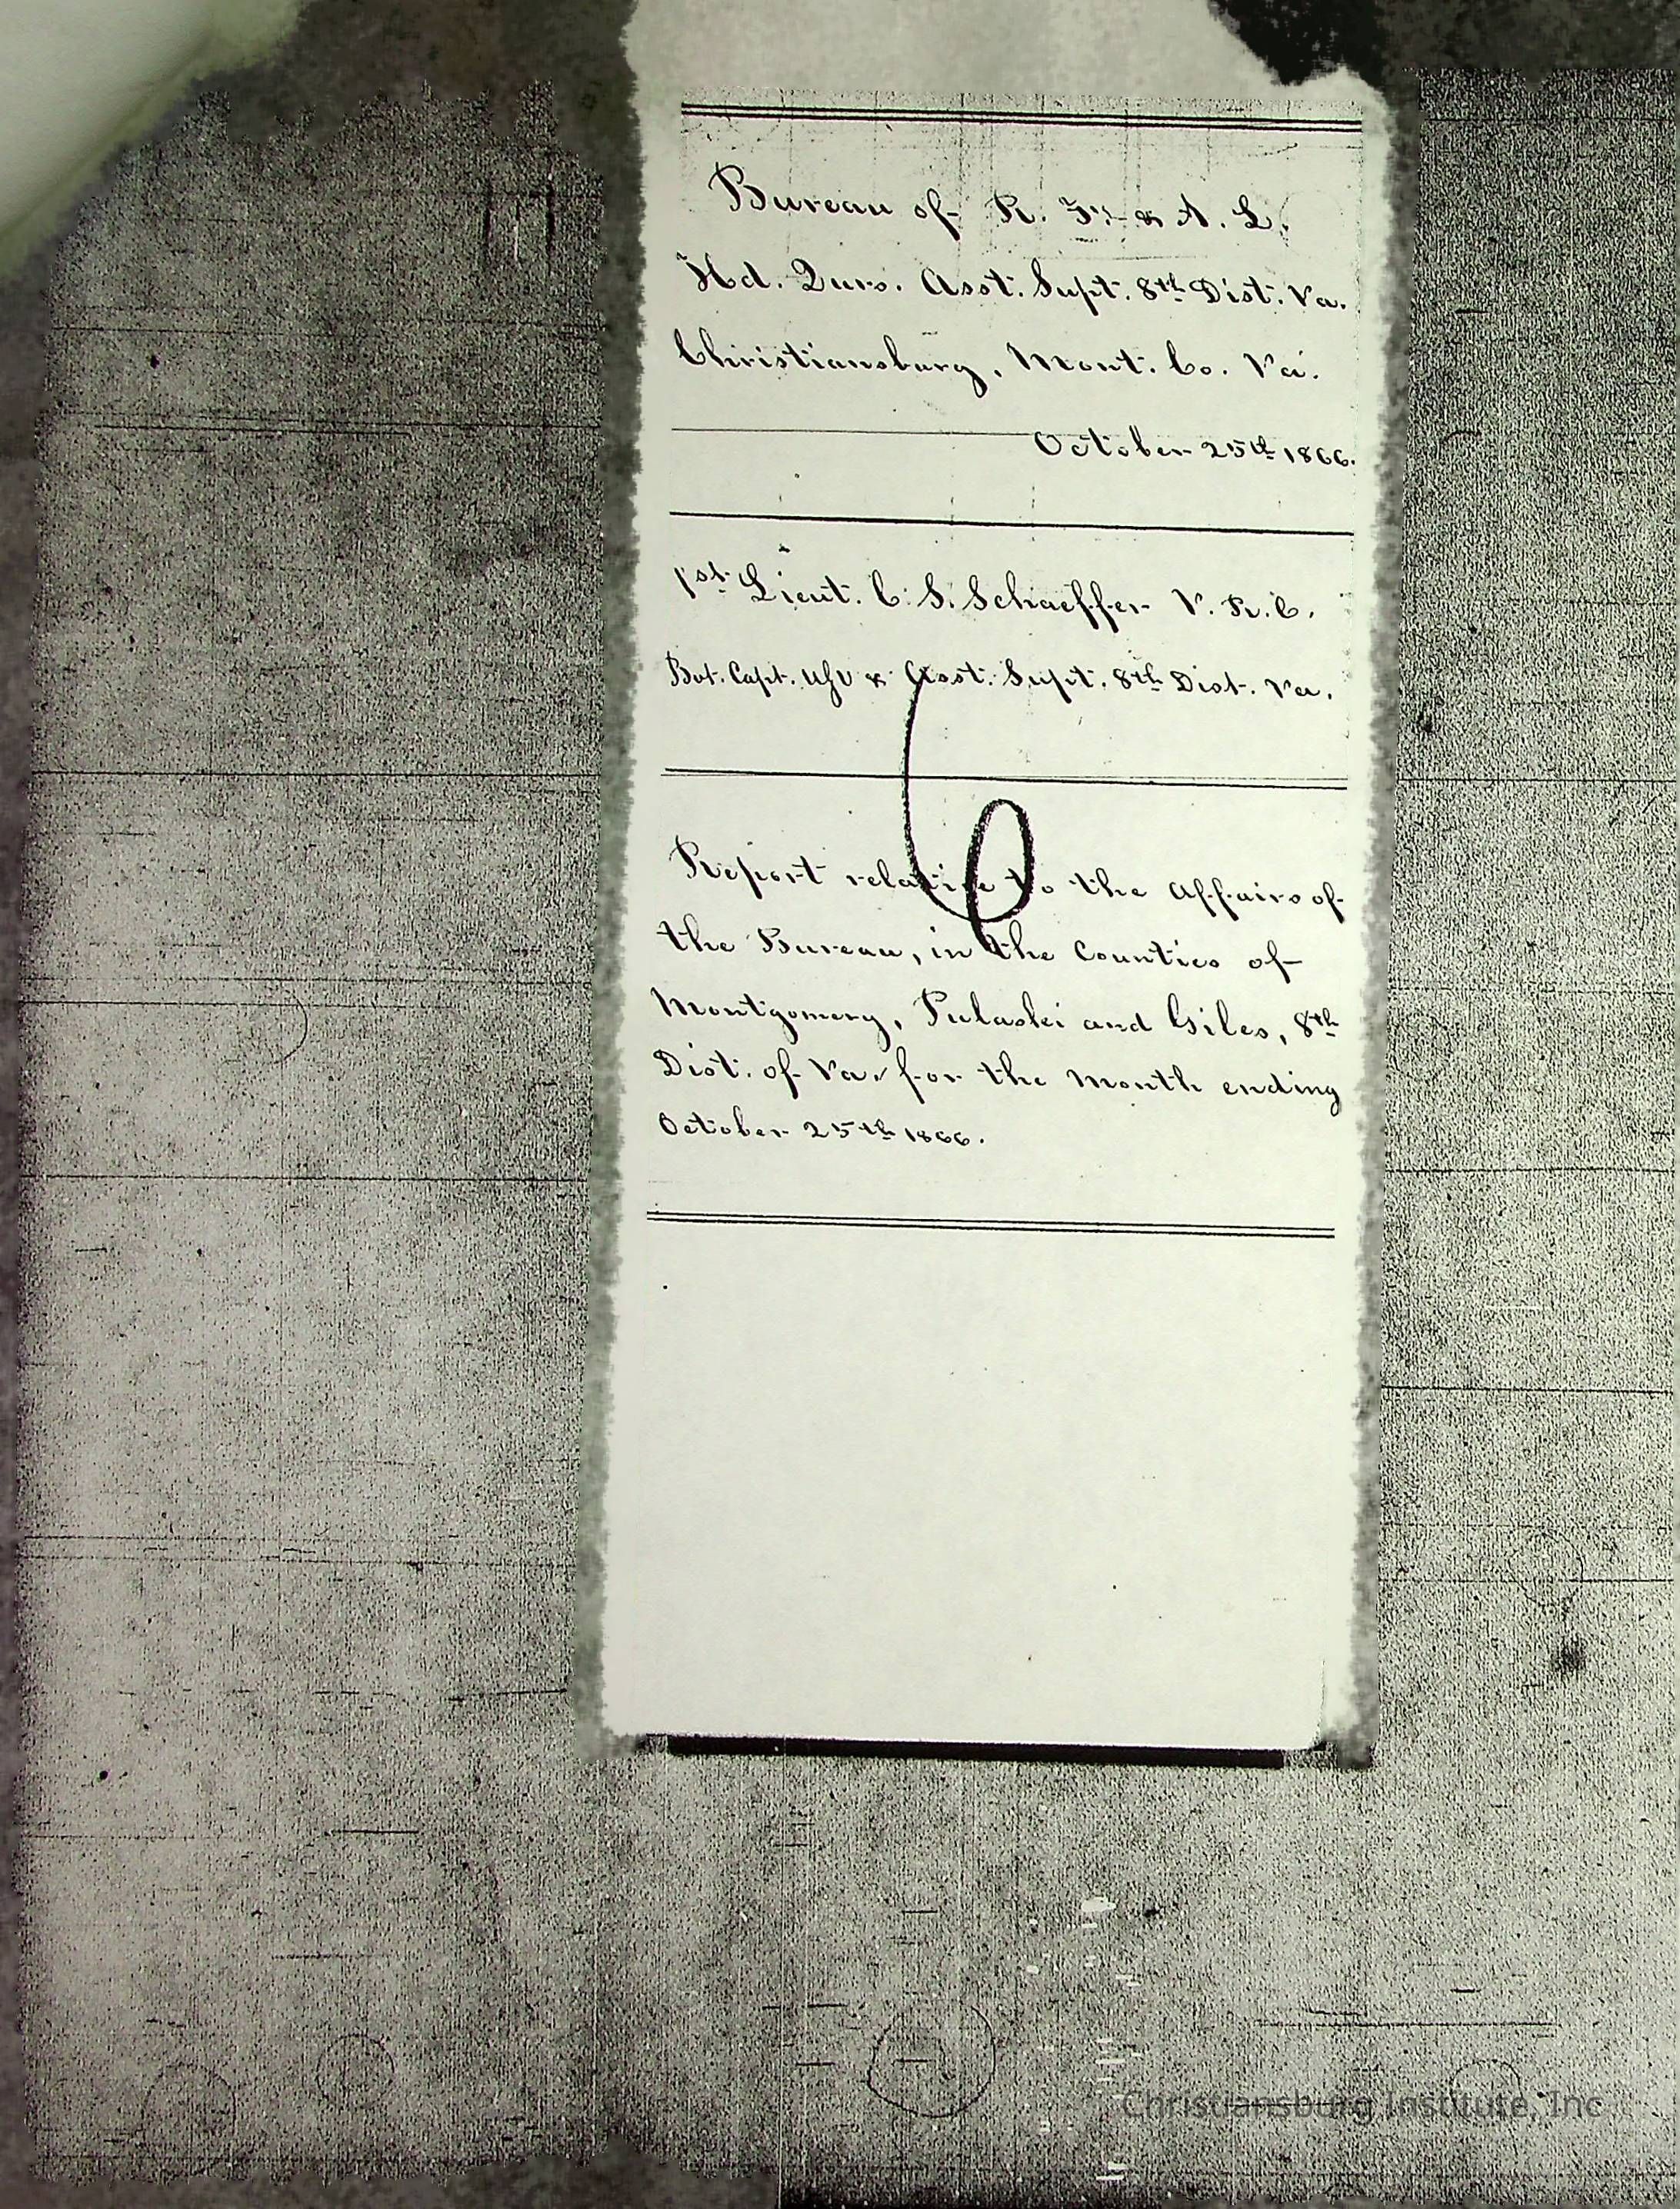 Bureau of R. F. & A. L.
Hd. Qurs. Asst. Supt. 8th Dist. Va.
Christiansburg, Mont. Co. Va.
October 25th 1866.
1st Lieut. C. S. Schaeffer V. R. C.
Bvt. Capt. USV & Asst. Supt. 8th Dist. Va.
Report relative to the Affairs of
the Bureau, in the Counties of
Montgomery, Pulaski and Giles, 8th
Dist. of Va. for the Month ending
October 25th 1866.
Christiansburg Institute, Inc